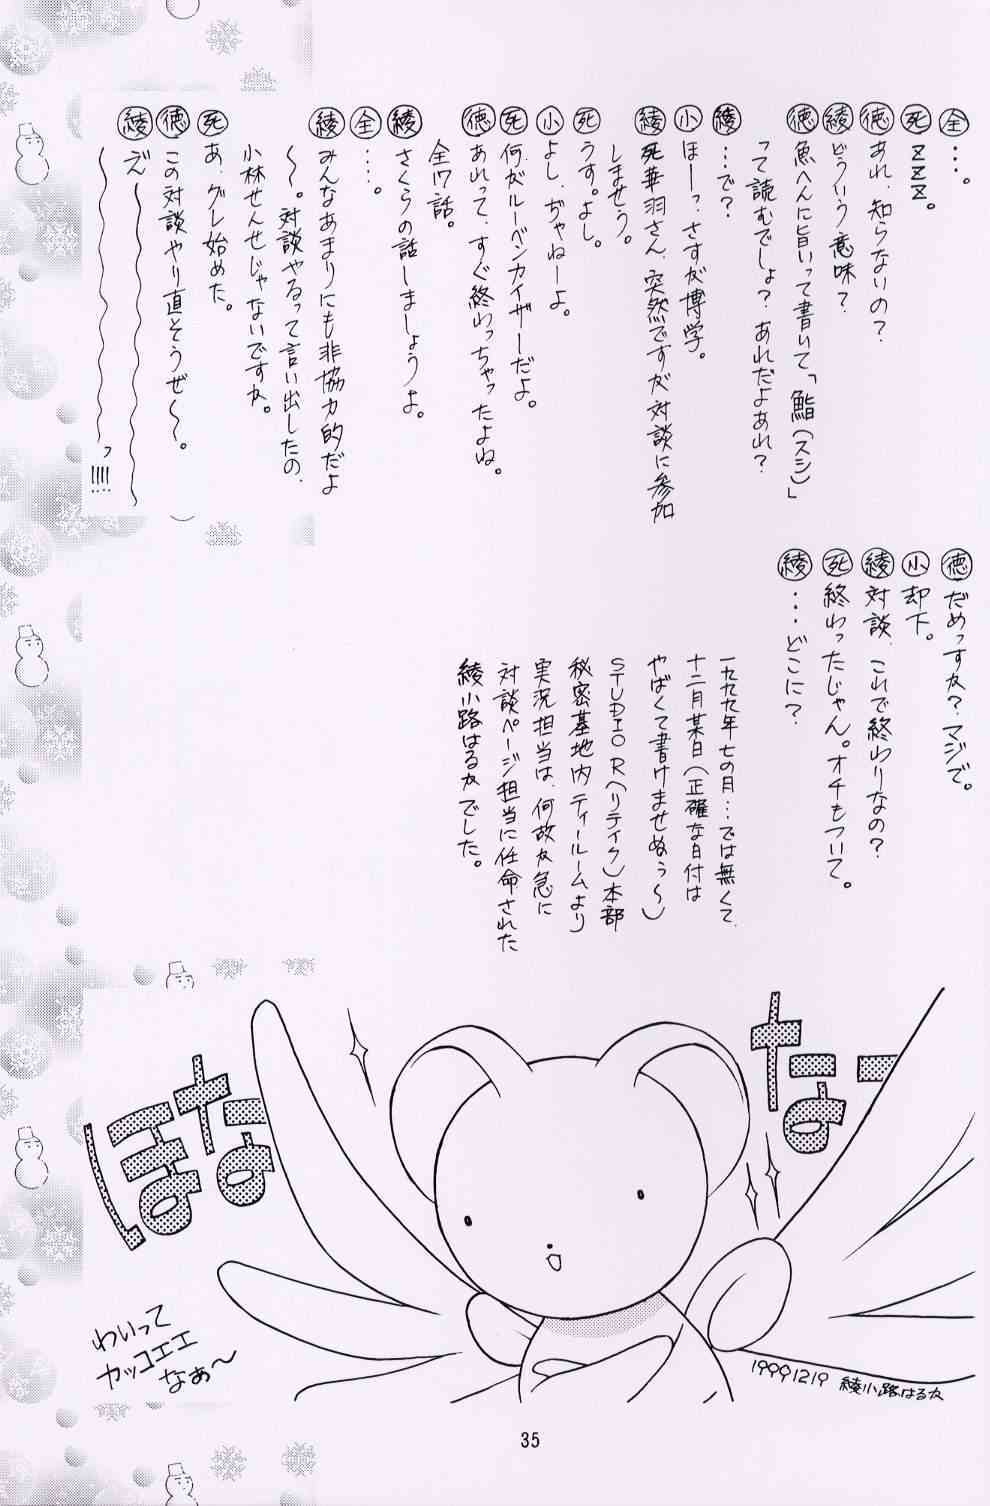 全 ・・・。
死 ZZZ。
徳 あれ、知らないの？
綾 どういう意味？
徳 魚へんに旨いって書いて「鮨(スシ)」
って読むでしょ？あれだよあれ？
綾 ・・・で？
小 ほーっ、さすが博学。
綾 死華羽さん、突然ですが対談に参加
しませう。
死 うす。よし。
小 よし、ぢゃねーよ。
死 何がルーベンカイザーだよ。
徳 あれって、すぐ終わっちゃったよね。
全17話。
綾 さくらの話しましょうよ。
全 ・・・・。
綾 みんなあまりにも非協力的だよ
〜。対談やるって言い出したの、
小林せんせじゃないですか。
死 あ、グレ始めた。
徳 この対談やり直そうぜ〜〜。
綾 でえ〜〜〜
〜〜〜〜っ!!!!
徳 だめっすか？マジで。
小 却下。
綾 対談、これで終わりなの？
死 終わったじゃん。オチもついて。
綾 ・・・どこに？
一九九九年七の月・・・では無くて、
十二月某日(正確な日付は
やばくて書けませぬぅ〜)
STUDIO R(リテイク)本部
秘密基地内ティールームより
実況担当は、何故か急に
対談ページ担当に任命された
綾小路はるかでした。
ほな
なー
わいって
カッコエエ
なぁ〜
19991219 綾小路はるか
35